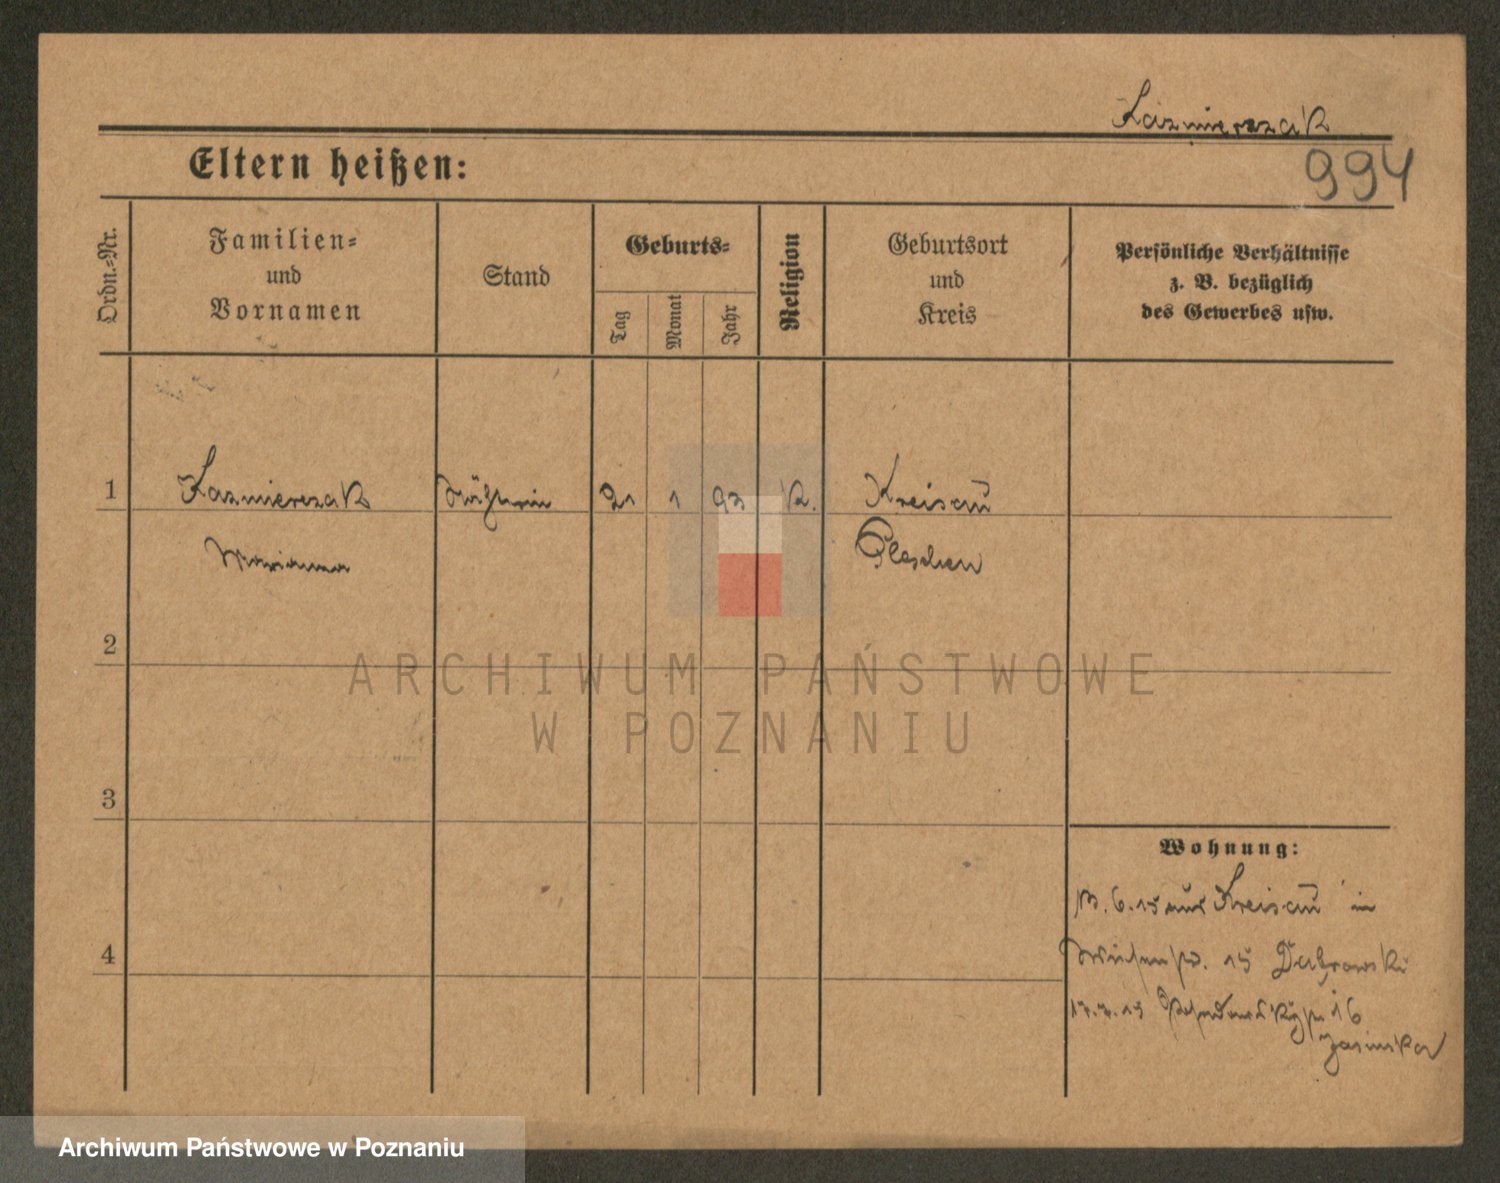 Kazmierczak
994
Eltern heißen:
Ordn.-Nr.
Familien-
und
Vornamen
Stand
Geburts-
Tag
Monat
Jahr
Religion
Geburtsort
und
Kreis
Persönliche Verhältnisse
z. B. bezüglich
des Gewerbes usw.
1
Kazmierczak
Näherin
21
1
93
K.
Kreisau
Marianna
Pleschen
2
ARCHIWUM PAŃSTWOWE
W POZNANIU
3
Wohnung:
6.15 aus Kreisau in
15 Dubrowski
4
16
Jasinska
Archiwum Państwowe w Poznaniu